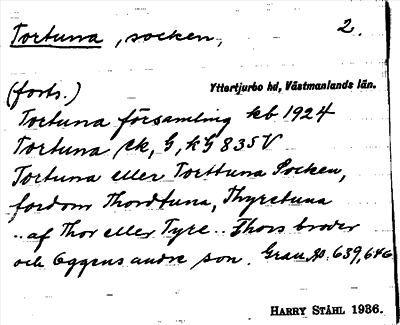 Tortuna, socken, 2.
(forts.) Yttertjurbo hd, Västmanlands län.
Tortuna församling kb 1924
Tortuna sk, G, kG 835 V
Tortuna eller Torttuna Socken,
fordom Thordtuna, Thyretuna
.. af Thor eller Tyre .. Thors broder
och Oggens andre son. Grau, s. 639, 646
HARRY STÅHL 1936.